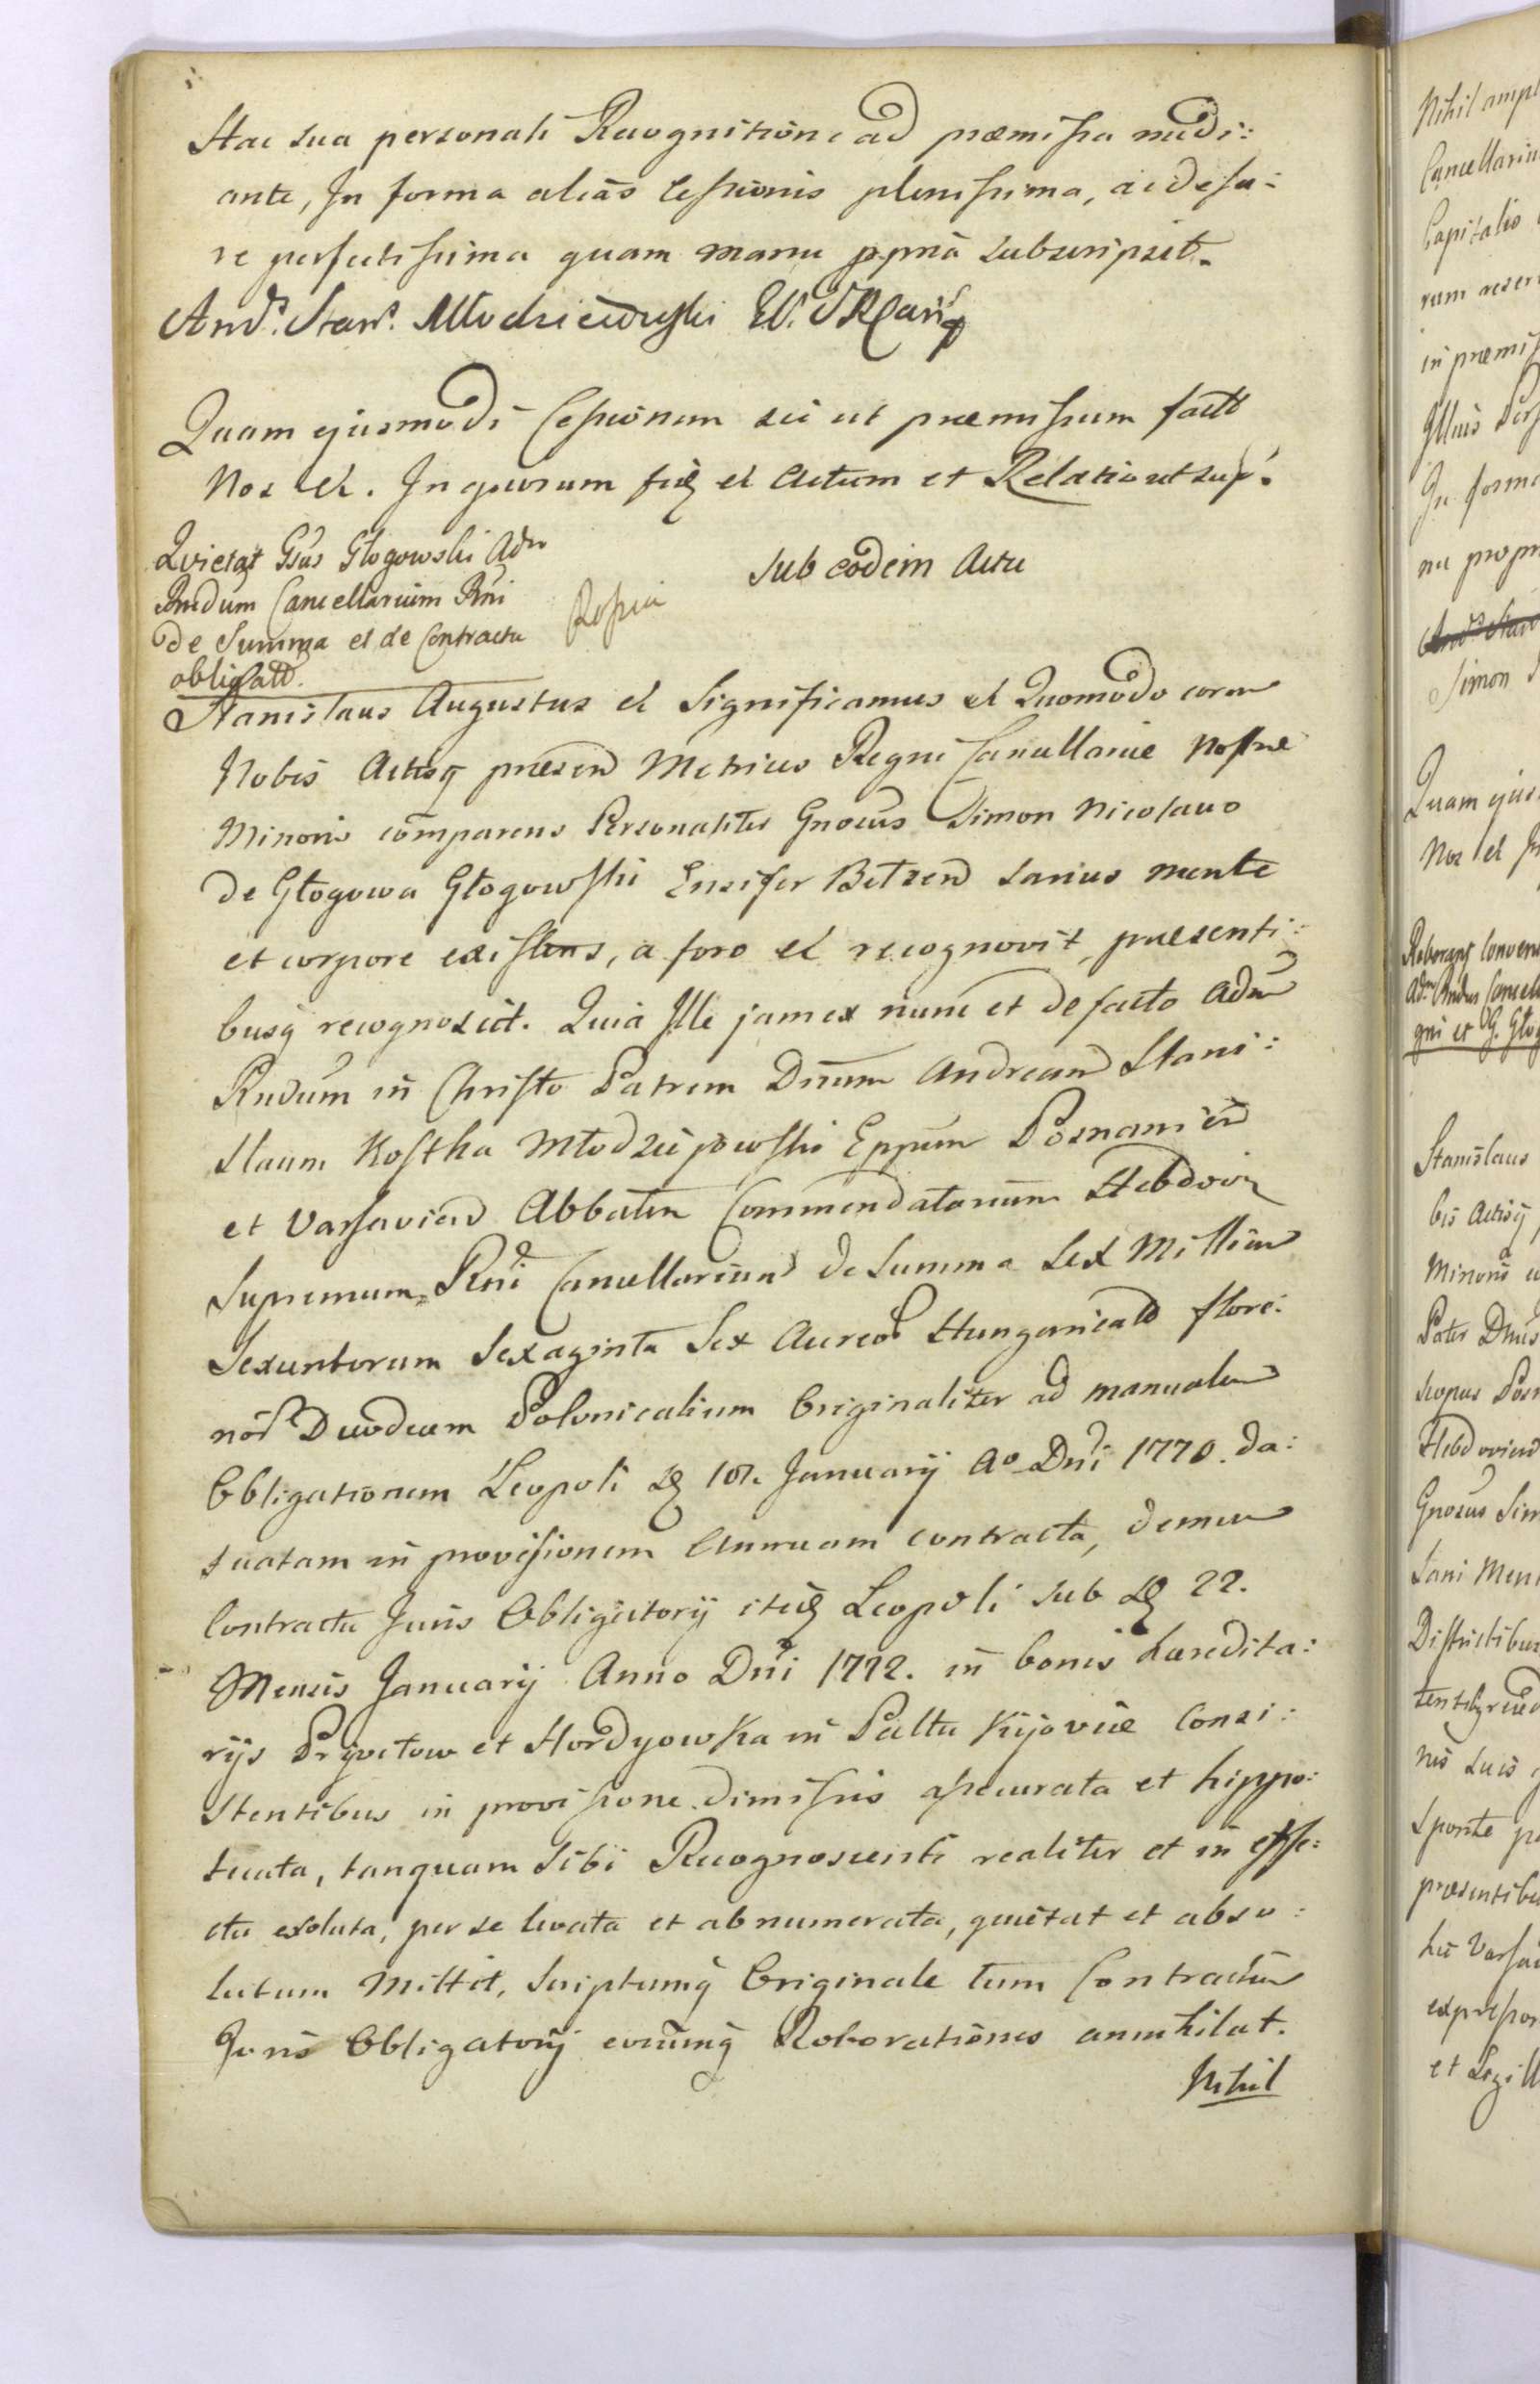 Hac sua personali Recognitione ad præmissa medi:
ante, In forma alias Cessionis plenissima, ac de ju:
re perfectissima quam manu ppria subscripsit.
And. Stan. Młodzieiowski
Quam ejusmodi Cessionem sic ut præmissum fact
Nos et. In quorum fid et Actum et Relatio ut sup.
Quietat Gsus Głogowski Adm
Rndum Cancellarium Rni
de Summa et de Contractu
obligatt.
Sub eodem Actu
Rossia
Stanislaus Augustus et Significamus et Quomodo coram
Nobis Actisq præsen Metrices Regni Cancellariæ Nostræ
Minoris comparens Personaliter Gnosus Simon Nicolaus
de Głogowa Głogowski Ensifer Betzen sanus mente
et corpore existens, a foro et recognovit, præsenti:
busq recognoscit. Quia Ille jam ex nunc et de facto Adm
Rndum in Christo Patrem Dnum Andream Stani:
slaum Kostka Młodziejowski Eppum Posnanien
et Varsavien Abbatem Commendatarium Hebdovien
Supremum Rni Cancellarium de Summa Sex Millium
Sexcentorum Sexaginta Sex Aureor Hungaricald flore:
nor Duodecim Polonicalium Originaliter ad manualem
Obligationem Leopoli D 10. Januarij Ao Dni 1770. da:
tuatam in provisionem Annuam contracta, demum
Contractu Juris Obligatorij itid Leopoli sub D 22.
Mensis Januarij Anno Dni 1772. in bonis hæredita:
rijs Prjvitow et Hordyowka in Pa̅l̅t̅u Kijoviæ Consi:
stentibus in provisione dimissis assecurata et hippo:
tecata, tanquam sibi Recognoscenti realiter et in effe:
ctu exoluta, per se levata et abnumerata, quietat et abso:
lutum Mittit, Scriptumq Originale tum Contractum
Juris Obligatorij eorumq Roborationes annihilat.
Nihil
Nihil ampl
Cancellariu
Capitalis
rum reser
in præmis
Illius Pers
In forma
nu propri
Simon
Quam ejus
Nos et In
Roborant Conven
Adm Rndus Cancel
gni et G. Głog
Stanislaus
bis Actisq
Minoris co
Pater Dnus
scopus Posn
Hebdovien
Gnosus Sim
Sani Men
Districtibus
nis suis
Sponte pe
præsentibu
hic Varsa
expresso
et Sigill